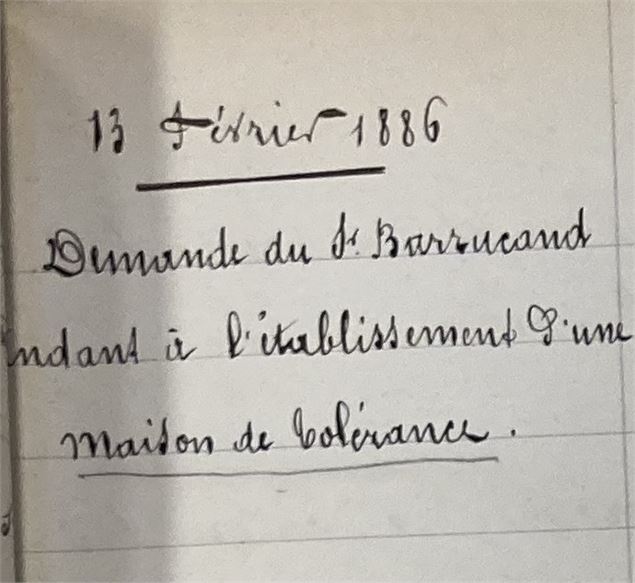 13 Février 1886
Demande du Sr. Barrucand
endant à l'établissement d'une
maison de tolérance.